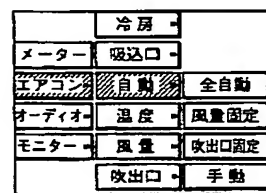 冷房
メーター 吸込口
エアコン 自動 全自動
オーディオ 温度 風量固定
モニター 風量 吹出口固定
吹出口 手動